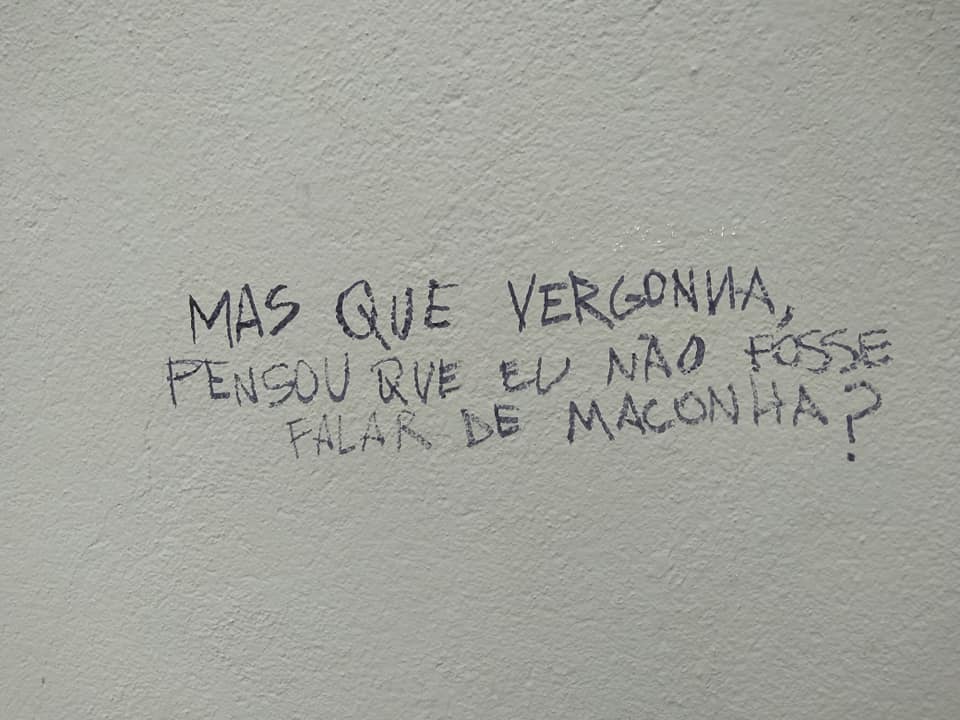 MAS QUE VERGONHA,
PENSOU QUE EU NÃO FOSSE
FALAR DE MACONHA?